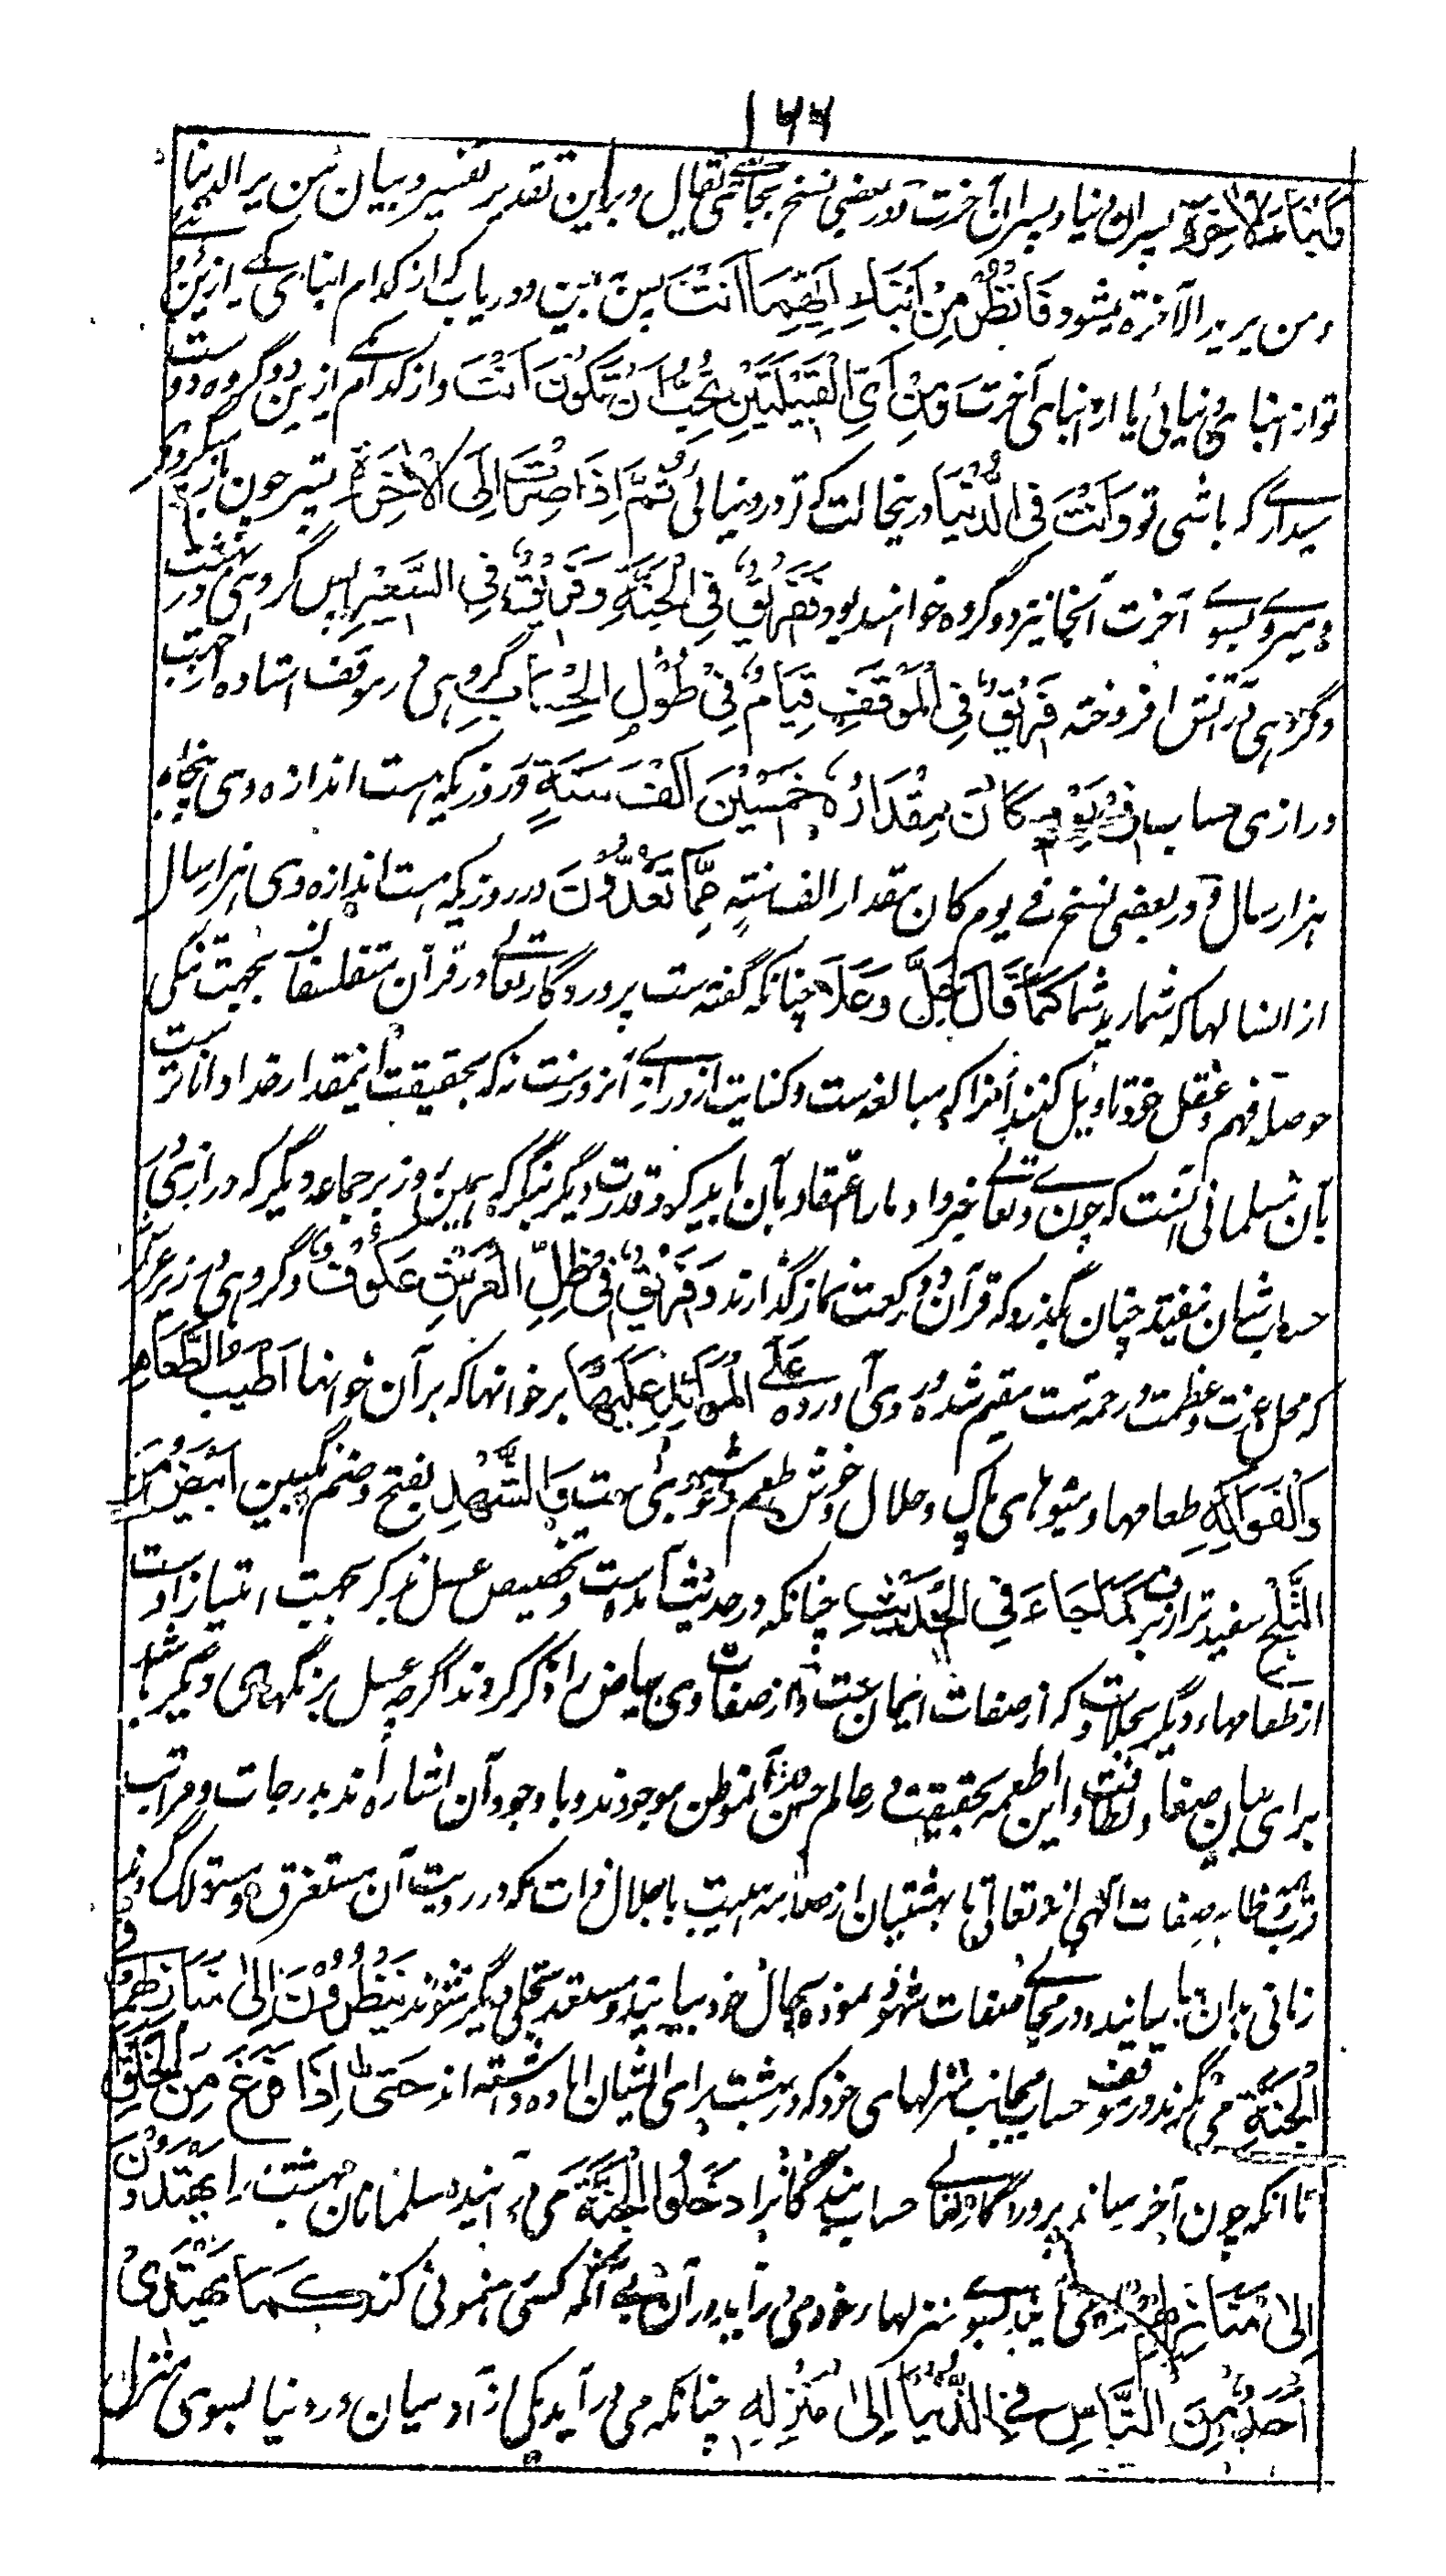 ۱۶۶
وَابْنَاءُ الْآخِرَةِ پسران دنیا و پسران آخرت و در بعضی نسخ بجای تقابل و براین تقدیر تفسیر و بیان من یرید الدنیا
و من یرید الآخرة میشود فَانْظُرْ مِنْ اَبْنَاءِ اَيِّهِمَا اَنْتَ پس ببین و دریاب که از کدام ابنای از ین
تو از ابنای دنیائی یا از ابنای آخرت وَمِنْ اَيِّ الْقَبِيْلَتَيْنِ تُحِبُّ اَنْ تَكُوْنَ اَنْتَ و از کدام از ین دو گروه دوست
میداری که باشی تو وَاَنْتَ فِي الدُّنْيَا درینحالت که تو در دنیائی ثُمَّ اِذَا صِرْتَ اِلَى الْآخِرَةِ پستر چون باز میگردی
و میروی بسوی آخرت آنجا نیز دو گروه خواهند بود فَفَرِيْقٌ فِي الْجَنَّةِ وَفَرِيْقٌ فِي السَّعِيْرِ پس گروهی در بهشت
و گروهی در آتش افروخته فَرِيْقٌ فِي الْمَوْقِفِ قِيَامٌ فِيْ طُوْلِ الْحِسَابِ گروهی در موقف استاده از جهت
درازی حساب فِيْ يَوْمٍ كَانَ مِقْدَارُهُ خَمْسِيْنَ اَلْفَ سَنَةٍ در روزیکه هست اندازه وی پنجاه
هزار سال و در بعضی نسخ فے یوم کان مقداره الف سنته مِمَّا تَعُدُّوْنَ در روزیکه هست اندازه وی هزار سال
از انسالها که شمارید شما كَمَا قَالَ جَلَّ وَعَلَا چنانکه گفته ست پروردگار تعالے در قرآن متفلسفان بجهت تنگی
حوصله فهم و عقل خود تاویل کنند آنرا که مبالغه ست و کنایت از درازے آنروزست نه که بحقیقت اینمقدار خدا داناتر ست
بآن مسلمانی آنست که چون وے تعالے خبر داد مارا اعتقاد بآن باید کرد و قدرت دیگر بنگر که همین روز بر جماعه دیگر که درازی در
حساب شان نیفتد چنان بگذرد که قرآن دو رکعت نماز گذارند وَفَرِيْقٌ فِيْ ظِلِّ الْعَرْشِ عَكُوْفٌ و گروهی در زیر عرش
که محل عزت و عظمت و رحمتست مقیم شده و روی آورده عَلَے الْمَوَائِدِ عَلَيْهَا بر خوانها که بر آن خوانها اَطْيَبُ الطَّعَامِ
وَالْفَوَاكِهِ طعامها و میوهای پاک و حلال خوش طعم و خوشبوی ست وَالشَّهْدِ بفتح و ضم نگبین اَبْيَضُ مِنَ
الثَّلْجِ سفید تر از برف كَمَا جَاءَ فِي الْحَدِيْثِ چنانکه در حدیث آمده است و تخصیص عسل بذکر بجهت امتیاز اوست
از طعامهاء دیگر بحلاوت که از صفات ایمان ست و از صفات وی بیاض را ذکر کردند اگرچه عسل برنگهای دیگر باشد
برای بیان صفا و لطافت و این اطعمه بحقیقت در عالم حسن درآنموطن موجودند و با وجود آن اشاره اند بدرجات و مراتب
قرب و مظاهر صفات الهی اند تعالی تا بهشتیان از صدمه هیبت باجلال ذات که در رویت آن مستغرق و مستهلک گردند
زمانی بدان بیایند و در مجالے صفات شهود نموده بحال خود بیایند و مستعد تجلی دیگر شوند يَنْظُرُوْنَ اِلٰى مَنَازِلِهِمْ فِي
الْجَنَّةِ می نگرند در موقف حساب بجانب منزلهای خود که در بهشت برای ایشان آماده داشته اند حَتّٰى اِذَا فَرَغَ مِنَ الْخَلَائِقِ
تا انکه چون آخر میاند پروردگار تعالے حساب بندگانرا دَخَلُوا الْجَنَّةَ می در آیند مسلمانان بهشت را يَهْتَدُوْنَ
اِلٰى مَنَازِلِهِمْ می آیند بسوے منزلهاء خود می درآیند در آن بی آنکه کسی رهنمونی کند كَمَا يَهْتَدِيْ
اَحَدٌ مِنَ النَّاسِ فِي الدُّنْيَا اِلٰى مَنْزِلِهِ چنانکه می در آید یکی از آدمیان در دنیا بسوی منزل